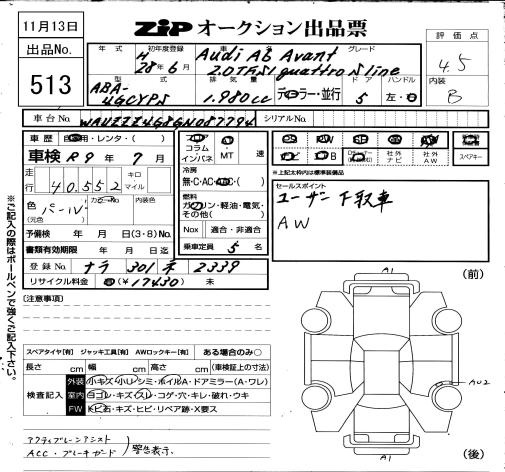 11月13日
ZIP オークション出品票
評価点
4.5
内装
B
出品No.
513
年式 初年度登録 車名 グレード
H 28年6月 Audi A6 Avant
2.0TFSI quattro S line
型式 排気量 ドア ハンドル
ABA-
4GCYPS 1.980cc ディーラー・並行 5 左・
車台No. シリアルNo.
車歴 自家用・レンタ・( )
車検 R9年7月
走行 40.552 キロ・マイル
色(元色) カラーNo. 内装色
パール
予備検 年 月 日(3・8)No.
書類有効期限 年 月 日迄
登録No. ナラ 301 ネ 2339
リサイクル料金 (¥17430) 未
コラム
インパネ MT 速
冷房
無・C・AC・( )
燃料
ガソリン・軽油・電気・
その他( )
Nox 適合・非適合
乗車定員 5 名
社外ナビ 社外AW スペアキー
※上記太枠内は標準装備品
セールスポイント
ユーザー下取車
AW
※ご記入の際はボールペンで強くご記入下さい。
(注意事項)
スペアタイヤ[有] ジャッキ工具[有] AWロックキー[有] ある場合のみ○
長さ cm 幅 cm 高さ cm (車検証上の寸法)
検査記入
外装 小キズ・小ハンシミ・ホイルA・ドアミラー(A・ワレ)
室内 ヨゴレ・キズ・スレ・コゲ・穴・キレ・破れ・ウキ
FW 飛石・キズ・ヒビ・リペア跡・X要ス
アクティブレーンアシスト
ACC・ブレーキガード 警告表示
(前)
A1
AU2
A1
(後)